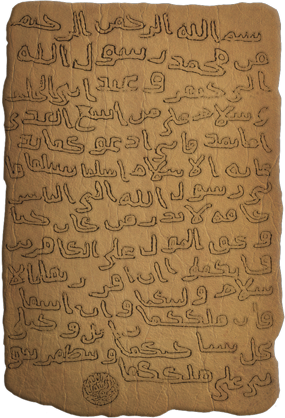 بسم الله الرحمن الرحيم
من محمد رسول الله
الى جيفر و عبد ابني الجلند
ى و سلام على من اتبع الهدى
اما بعد فاني ادعوكما بد
عايه الاسلام اسلما تسلما فا
ني رسول الله الى الناس
كافه لانذر من كان حيا
و يحق القول على الكافرين
فانكما ان اقررتما بالا
سلام وليتكما وان ابيتما
فان ملككما زايل و خيلي
تحل بساحتكما و تظهر نبو
تي على ملككما